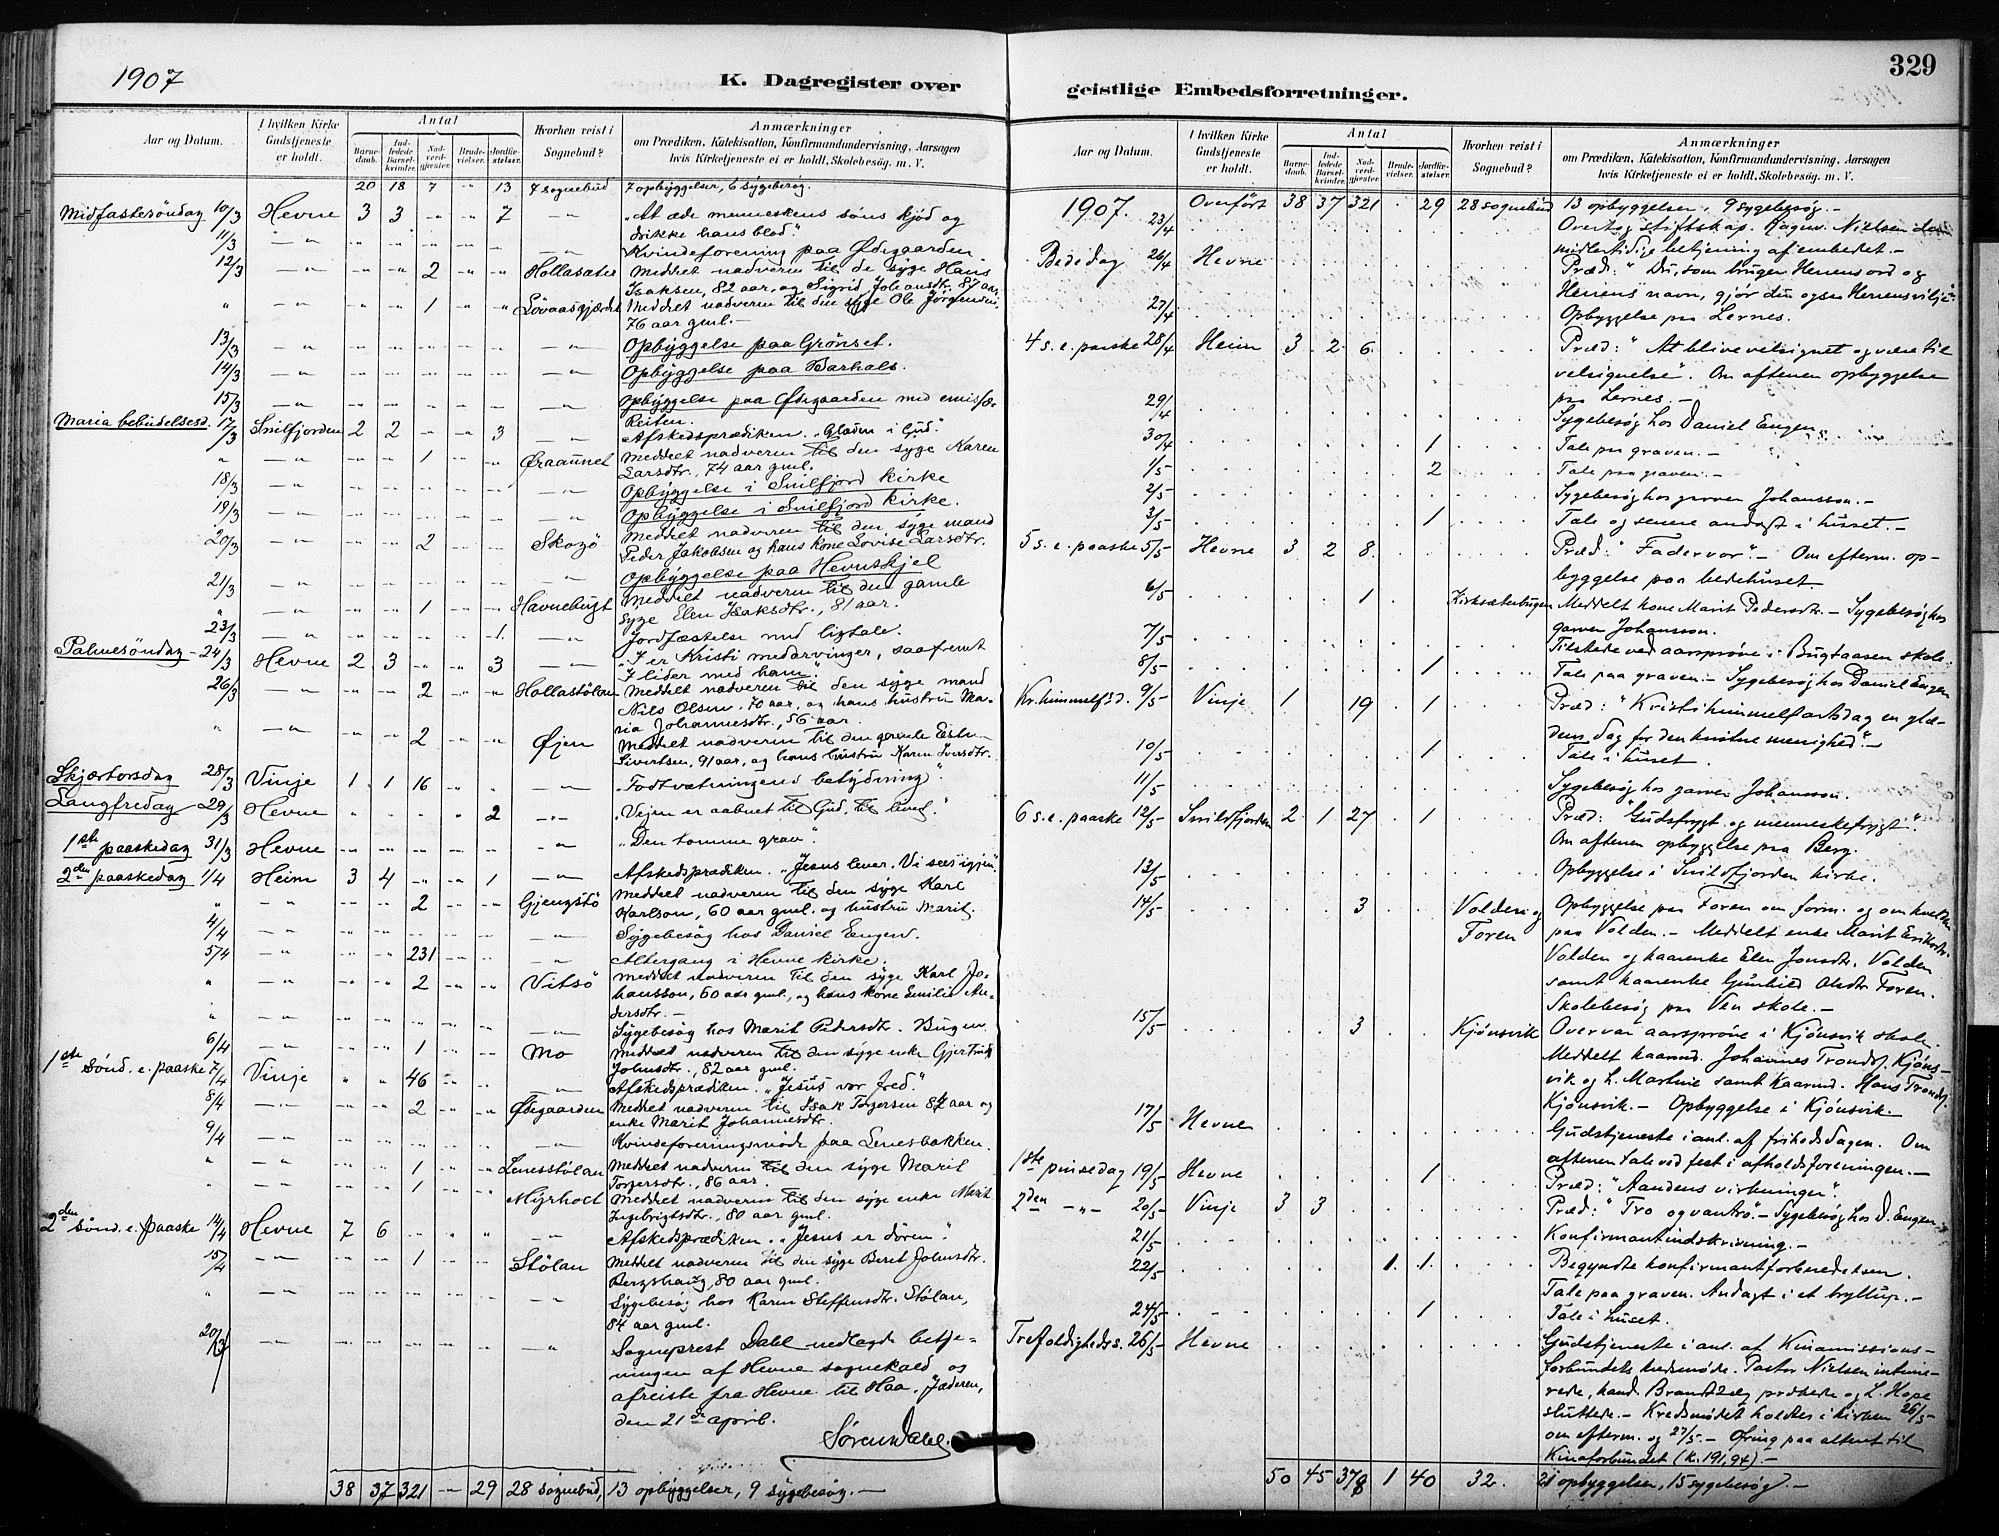 1907
K. Dagregister over
Aar og Datum. I hvilken Kirke Gudstjeneste er holdt. Antal Barnedaab. Indledede Barselkvinder. Nadverdgjester. Brudevielser. Jordfæstelser. Hvorhen reist i Sognebud? Anmærkninger om Prædiken, Katekisation, Konfirmandundervisning, Aarsagen hvis Kirketjeneste ei er holdt, Skolebesøg m. V.
20 18 7 " 13 7 sognebud 7 opbyggelser, 6 sygebesøg.
Midfastesöndag 10/3 Hevne 3 3 " " 7 "At æde menneskens søns kjød og
drikke hans blod"
11/3 Kvindeforening paa Ødegaarden.
12/3 2 Hollasæter Meddelt nadveren til de syge Hans
Isaksen, 82 aar, og Sigrid Johansdtr. 87 aar.
" 1 Lövaasgjærdet Meddelt nadveren til den syge Ole Jörgensen,
76 aar gml. —
13/3 Opbyggelse paa Grönset.
14/3 Opbyggelse paa Barhals.
15/3 Opbyggelse paa Ødegaarden med emissær
Reiten.
Maria bebudelsesd. 17/3 Snilfjorden 2 2 " " 3 Afskedsprædiken. "Glæden i Gud."
" 1 Øraunet Meddelt nadveren til den syge Karen
Larsdtr., 74 aar gml.
18/3 Opbyggelse i Snilfjord kirke
19/3 Opbyggelse i Snilfjord kirke.
20/3 2 Skogö Meddelt nadveren til den syge mand
Peder Jakobsen og hans kone Lovise Larsdtr.
21/3 Opbyggelse paa Hevnskjel
" 1 Havnebugt Meddelt nadveren til den gamle
syge Elen Isaksdtr., 81 aar.
23/3 1 Jordfæstelse med ligtale.
Palmesöndag 24/3 Hevne 2 3 " " 3 "I er Kristi medarvinger, saafremt
I lider med ham."
26/3 2 Hollastölan Meddelt nadveren til den syge mand
Nils Olsen, 70 aar, og hans hustru Ma-
ria Johannesdtr., 56 aar.
" 2 Øjen Meddelt nadveren til den gamle
Sivertsen, 91 aar, og hans hustru Karen Iversdtr.
Skjærtorsdag 28/3 Vinje 1 1 16 "Fodtvætningens betydning".
Langfredag 29/3 Hevne 2 "Vejen er aabnet til Gud, til livet."
1ste paaskedag 31/3 Hevne "Den tomme grav".
2den paaskedag 1/4 Heim 3 4 " " 1 Afskedsprædiken. "Jesus lever. Vi sees igjen".
" 2 Gjengstö Meddelt nadveren til den syge Karl
Karlson, 60 aar gml. og hustru Marit.
4/4 Sygebesøg hos Daniel Engen.
5/4 231 Altergang i Hevne kirke.
" 2 Vitsö Meddelt nadveren til den syge Karl Jo-
hansson, 60 aar gml., og hans kone Emilie An-
dersdtr. —
" Sygebesøg hos Marit Pedersdtr. Bugen.
6/4 1 Mo Meddelt nadveren til den syge enke Gjertrud
Johnsdtr., 82 aar gml.
1ste Sönd. e. paaske 7/4 Vinje " " 46 Afskedsprædiken. "Jesus vor fred."
8/4 2 Ødegaarden Meddelt nadveren til Isak Torgersen 87 aar og
enke Marit Johannesdtr.
9/4 Kvindeforeningsmöde paa Lenesbakken.
" 1 Lenesstölan Meddelt nadveren til den syge Marit
Torgersdtr., 86 aar.
" 1 Myrholt Meddelt nadveren til den syge enke Marit
Ingebrigtsdtr., 80 aar gml.
2den Sönd. e. paaske 14/4 Hevne 7 6 " " " Afskedsprædiken. "Jesus er dören".
15/4 1 Stölan Meddelt nadveren til den syge Beret Johnsdtr.
Bergshaug, 80 aar gml.
" Sygebesøg hos Karen Steffensdtr. Stölan,
84 aar gml.
20/3 Sogneprest Dahl nedlagde betje-
ningen af Hevne sognekald og
afreiste fra Hevne til Haa, Jæderen,
den 21de april.
Sören Dahl.
38 37 321 — 29 28 sognebud, 13 opbyggelser, 9 sygebesøg. —
329
geistlige Embedsforretninger.
Aar og Datum. I hvilken Kirke Gudstjeneste er holdt. Antal Barnedaab. Indledede Barselkvinder. Nadverdgjester. Brudevielser. Jordfæstelser. Hvorhen reist i Sognebud? Anmærkninger om Prædiken, Katekisation, Konfirmandundervisning, Aarsagen hvis Kirketjeneste ei er holdt, Skolebesøg m. V.
1907. Overført 38 37 321 . 29 28 sognebud 13 opbyggelser, 9 sygebesøg. —
23/4 Overtog stiftskap. Ragnv. Nielsen den
midlertidige betjening af embedet —
Bededag 26/4 Hevne Præd: "Du, som bruger Herrens ord og
Herrens navn, gjør du ogsaa Herrens vilje"
27/4 Opbyggelse paa Lernes.
4 s. e. paaske 28/4 Heim 3 2 6 Præd: "At blive velsignet og være til
velsignelse". Om aftenen opbyggelse
paa Lernes. —
29/4 Sygebesøg hos Daniel Engen
30/4 1 Tale paa graven. —
1/5 2 Tale paa graven. —
2/5 Sygebesøg hos garver Johansson. —
3/5 1 Tale og senere andagt i huset. —
5 s. e. paaske 5/5 Hevne 3 2 8 Præd: "Fadervor". — Om efterm. op-
byggelse paa bedehuset.
6/5 1 Kirksæterbugen Meddelt kone Marit Pedersdtr. — Sygebesøg hos
garver Johansson.
7/5 Tilstede ved aarsprøve i Bugtaasen skole.
8/5 1 Tale paa graven. — Sygebesøg hos Daniel Engen
Kr. himmelf.d. 9/5 Vinje 1 19 1 Præd: "Kristi himmelfartsdag en glæ-
dens dag for den kristne menighed". —
10/5 1 Tale i huset.
11/5 Sygebesøg hos garver Johansson.
6 s. e. paaske 12/5 Snilsfjorden 2 1 27 . 1 Præd: "Gudsfrygt og menneskefrygt".
Om aftenen opbyggelse paa Berg.
13/5 Opbyggelse i Snilsfjorden kirke.
14/5 3 Volden og Foren Opbyggelse paa Foren om form. og om kvelden
paa Volden. — Meddelt enke Marit Eriksdtr.
Volden og kaarenke Elen Jonsdtr. Volden
samt kaarenke Gunhild Olsdtr Foren.
Skolebesøg paa Ven skole. —
15/5 3 Kjönsvik Overvar aarsprøve i Kjönsvik skole.
Meddelt kaarmd. Johannes Trondsf. Kjöns-
vik og h. Martine samt kaarmd. Hans Trondsf.
Kjönsvik. — Opbyggelse i Kjönsvik —
17/5 Hevne Gudstjeneste i anl. af frihedsdagen. Om
aftenen tale ved fest i afholdsforeningen. —
1ste pinsedag 19/5 Hevne 1 Præd: "Aandens virkninger".
2den " 20/5 Vinje 3 3 Præd: "Tro og vantro". — Sygebesøg hos D. Engen
21/5 Konfirmantindskrivning. —
22/5 1 1 Begyndte konfirmantforberedelsen.
Tale paa graven. Andagt i et bryllup. —
24/5 1 Tale i huset.
Trefoldighedss. 26/5 Hevne Gudstjeneste i anl. af Kinamissions-
forbundets kredsmöde. Pastor Nielsen intime-
rede, kand. Brandtzæg prækede og L. Hope
sluttede. — Kredsmödet holdtes i kirken 26/5
om efterm. og 27/5. — Ofring paa alteret til
Kinaforbundet (kr. 191,94). —
50 45 378 1 40 32. 21 opbyggelser, 15 sygebesøg. —